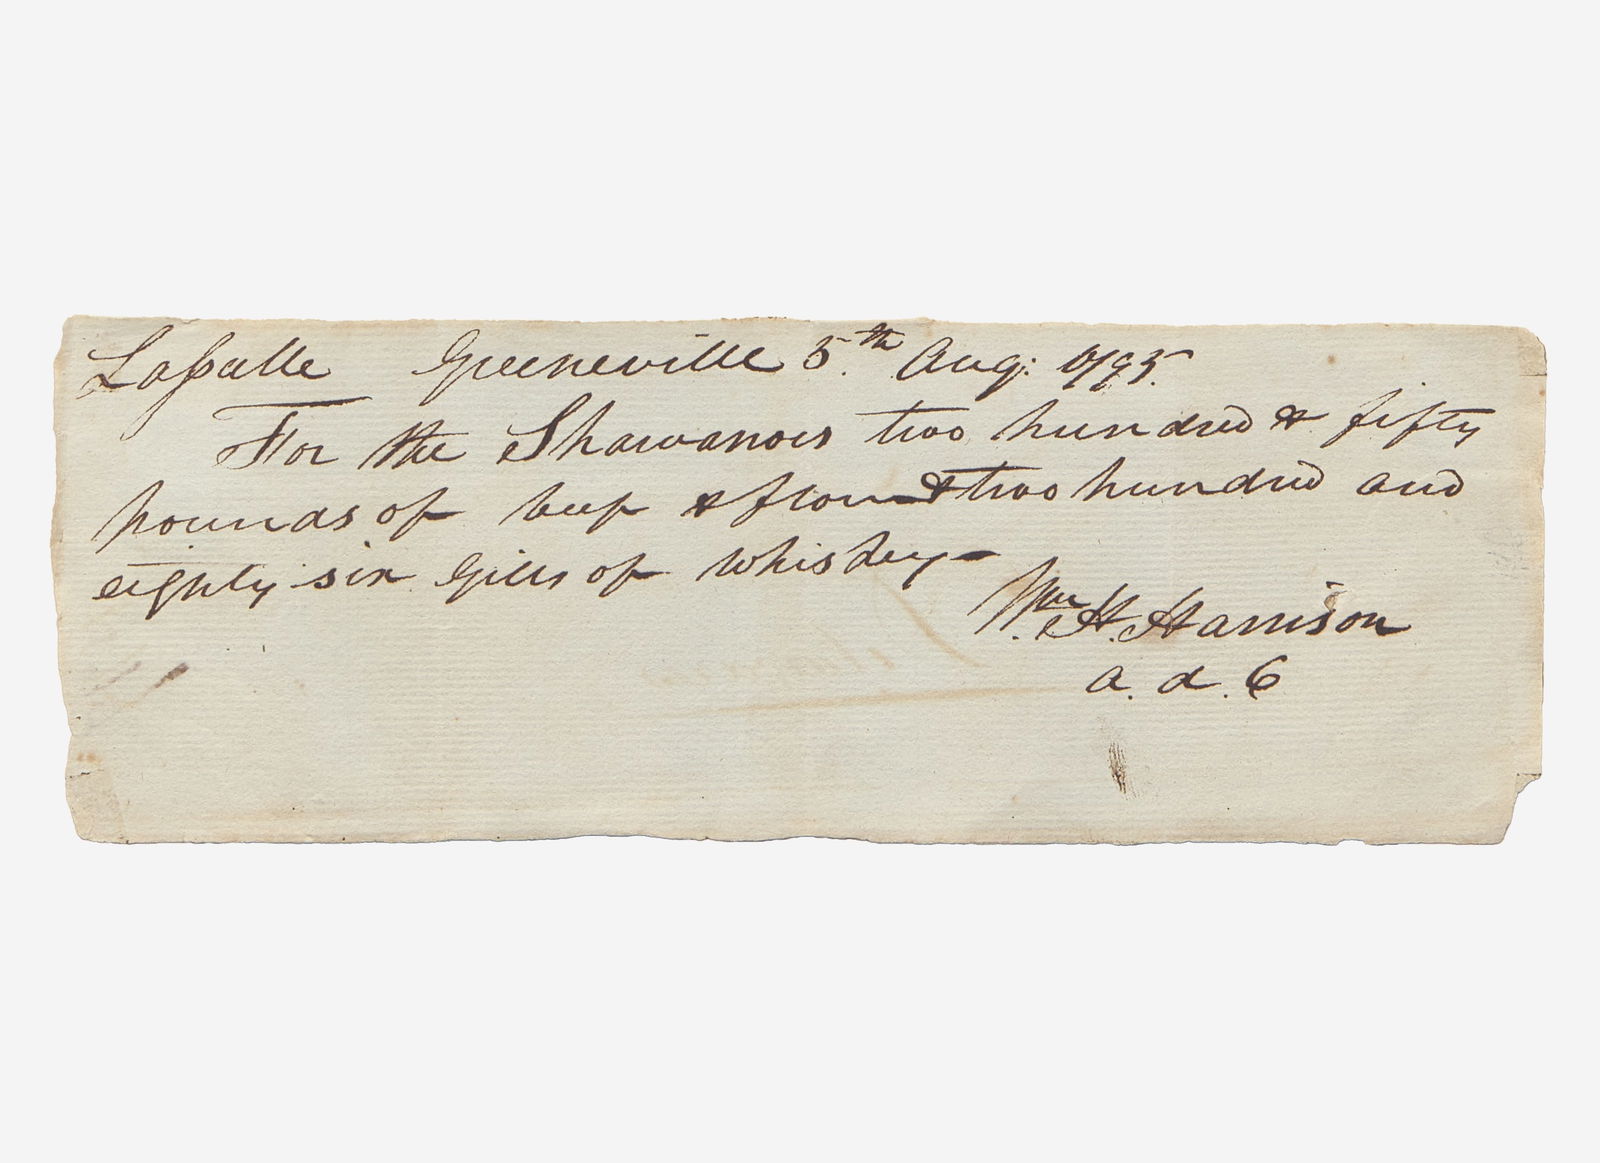 Lasselle Greeneville 5th Aug: 1795.
For the Shawanoes two hundred & fifty
pounds of beef & flour & two hundred and
eighty six Gills of Whiskey-
Wm. H. Harrison
a. d. C